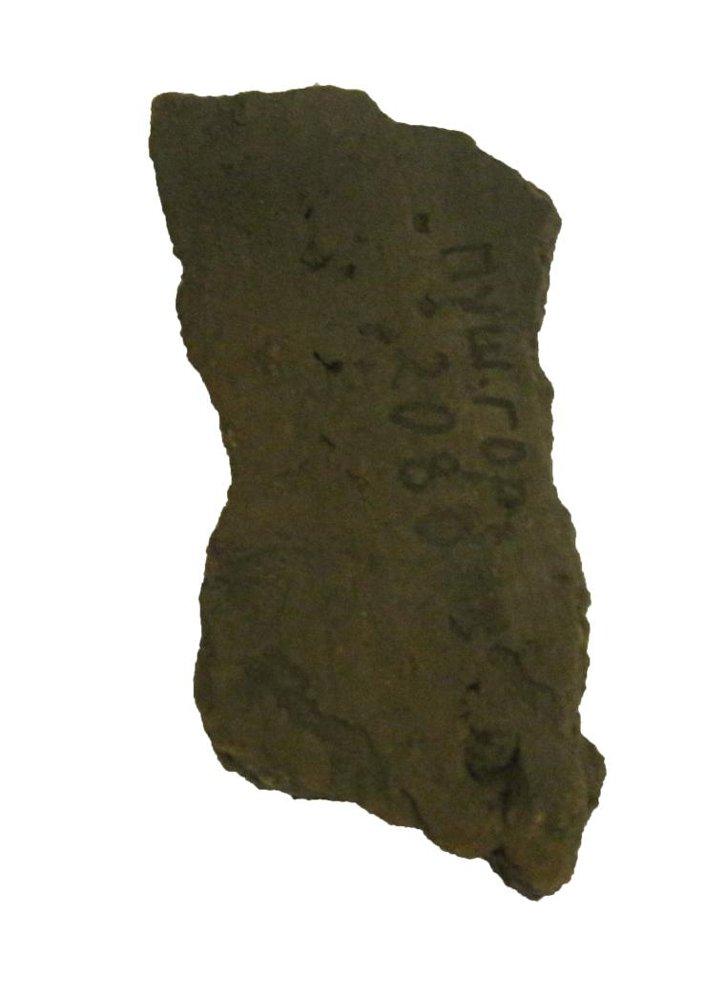 Пуш. гор.
2080